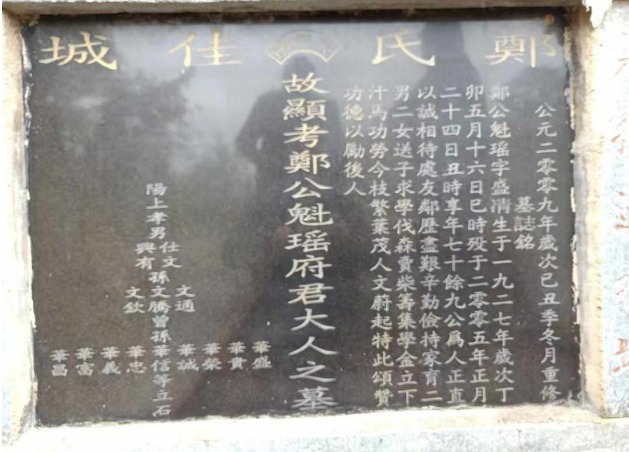 鄭氏佳城
公元二零零九年歲次己丑季冬月重修
墓誌銘
鄭公魁瑶字盛清生于一九二七年歲次丁
卯五月十六日巳時殁于二零零五年正月
二十四日丑時享年七十餘九公爲人正直
以誠相待處友鄰歷盡艱辛勤儉持家育二
男二女送子求學伐森賣柴籌集學金立下
汗馬功勞今枝繁葉茂人文蔚起特此頌贊
功德以勵後人
故顯考鄭公魁瑶府君大人之墓
華盛
華貴
華榮
文通
華誠
仕文
陽上孝男孫文騰曾孫華信等立石
興有
文欽
華忠
華義
華富
華昌